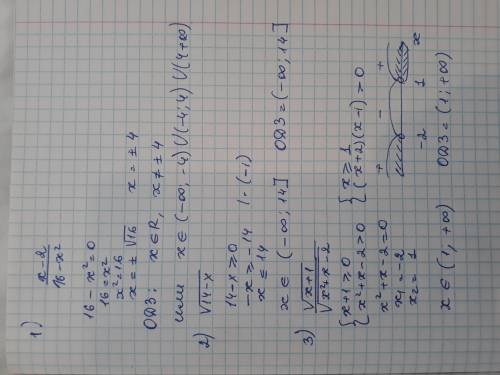 1) x-2 / 16-x²
16-x²=0
16=x²
x²=16
x=±√16   x=±4
ОДЗ: x∈R, x≠±4
или x∈(-∞;-4)∪(-4;4)∪(4+∞)
2) √14-x
14-x≥0
-x≥-14 |·(-1)
x≤14
x∈(-∞;14]   ОДЗ=(-∞;14]
3) √x+1 / √x²+x-2
{ x+1≥0   { x≥1
{ x²+x-2>0   { (x+2)(x-1)>0
x²+x-2=0
x₁=-2
x₂=1
+ - +
-2 1 x
x∈(1;+∞)   ОДЗ=(1;+∞)